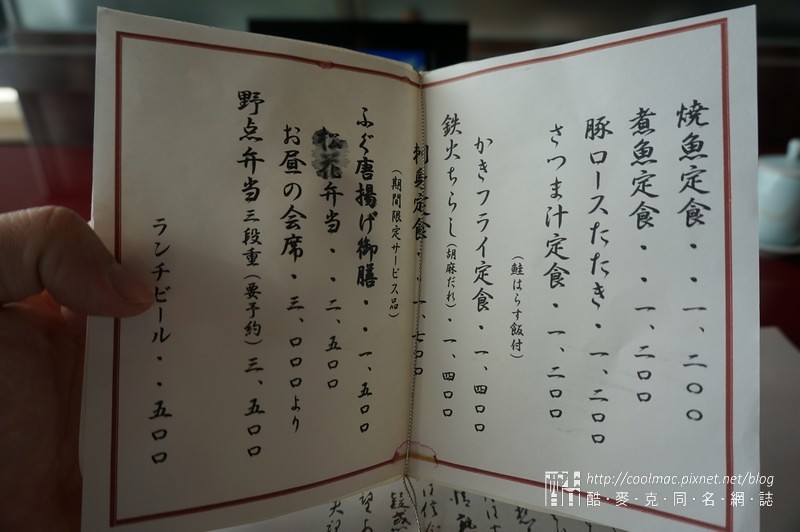 焼魚定食・・一、二〇〇
煮魚定食・・一、二〇〇
豚ロースたたき・一、二〇〇
さつま汁定食・一、二〇〇
(鮭はらす飯付)
かきフライ定食・一、四〇〇
鉄火ちらし(胡麻だれ)・一、四〇〇
刺身定食・・一、七〇〇
(期間限定サービス品)
ふぐ唐揚げ御膳・・一、五〇〇
松花弁当・・二、五〇〇
お昼の会席・三、〇〇〇より
野点弁当三段重(要予約)三、五〇〇
ランチビール・・五〇〇
http://coolmac.pixnet.net/blog
酷・麥・克・同・名・網・誌